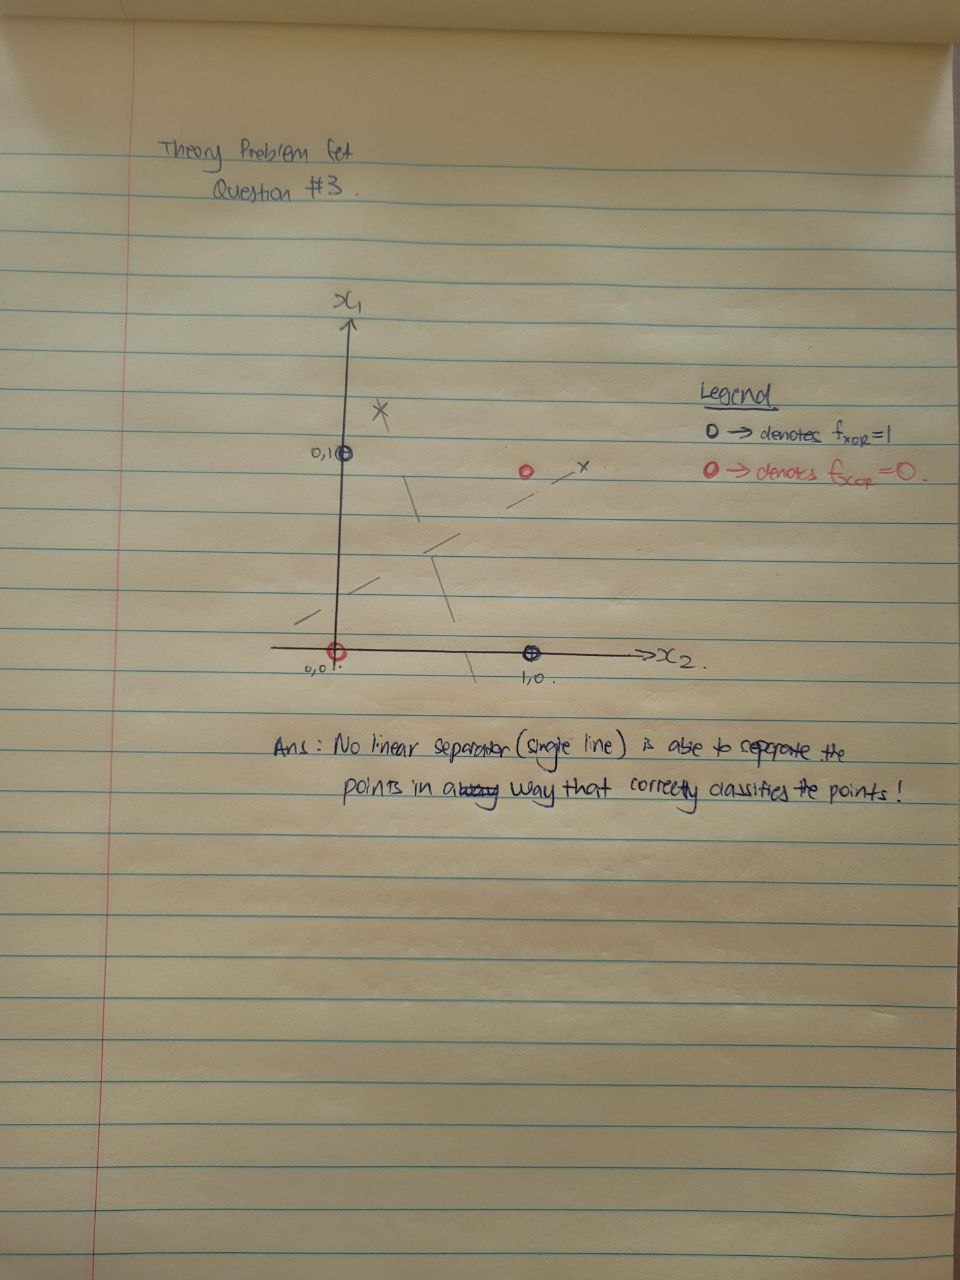 Theory Problem Set
Question #3.
x₁
Legend
O → denotes fXOR=1
0,1
O → denotes fXOR=0.
x
x₂.
0,0
1,0.
Ans: No linear separator (single line) is able to separate the
points in a way that correctly classifies the points!